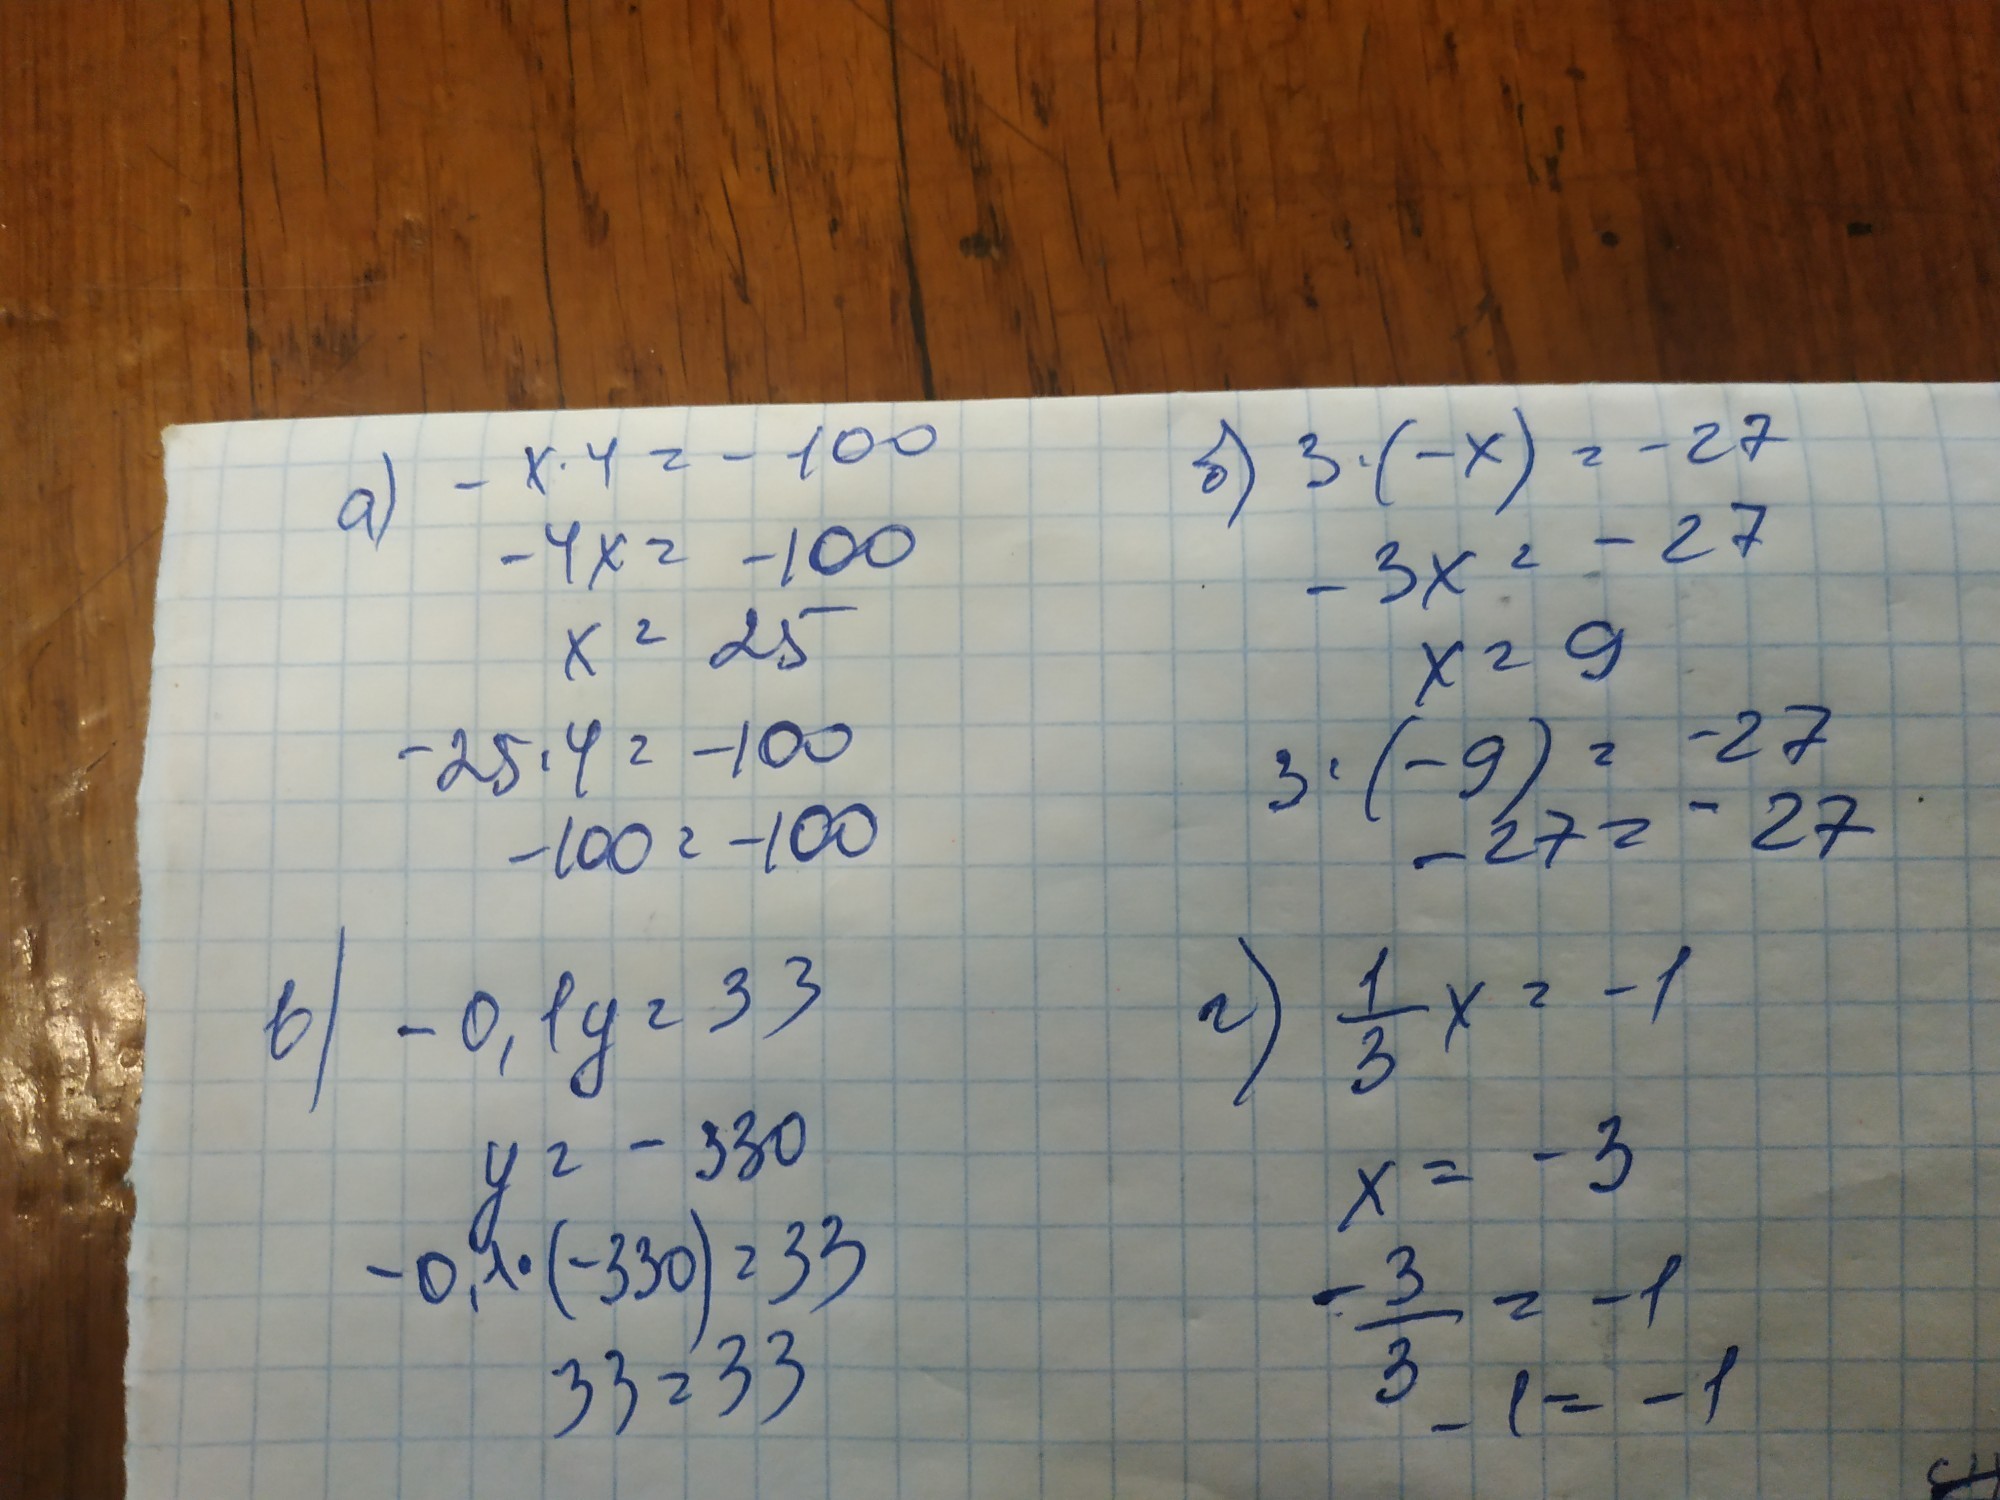 а) -x·4 = -100
-4x = -100
x = 25
-25·4 = -100
-100 = -100
б) 3·(-x) = -27
-3x = -27
x = 9
3·(-9) = -27
-27 = -27
в) -0,1y = 33
y = -330
-0,1·(-330) = 33
33 = 33
г) 1/3 x = -1
x = -3
-3/3 = -1
-1 = -1